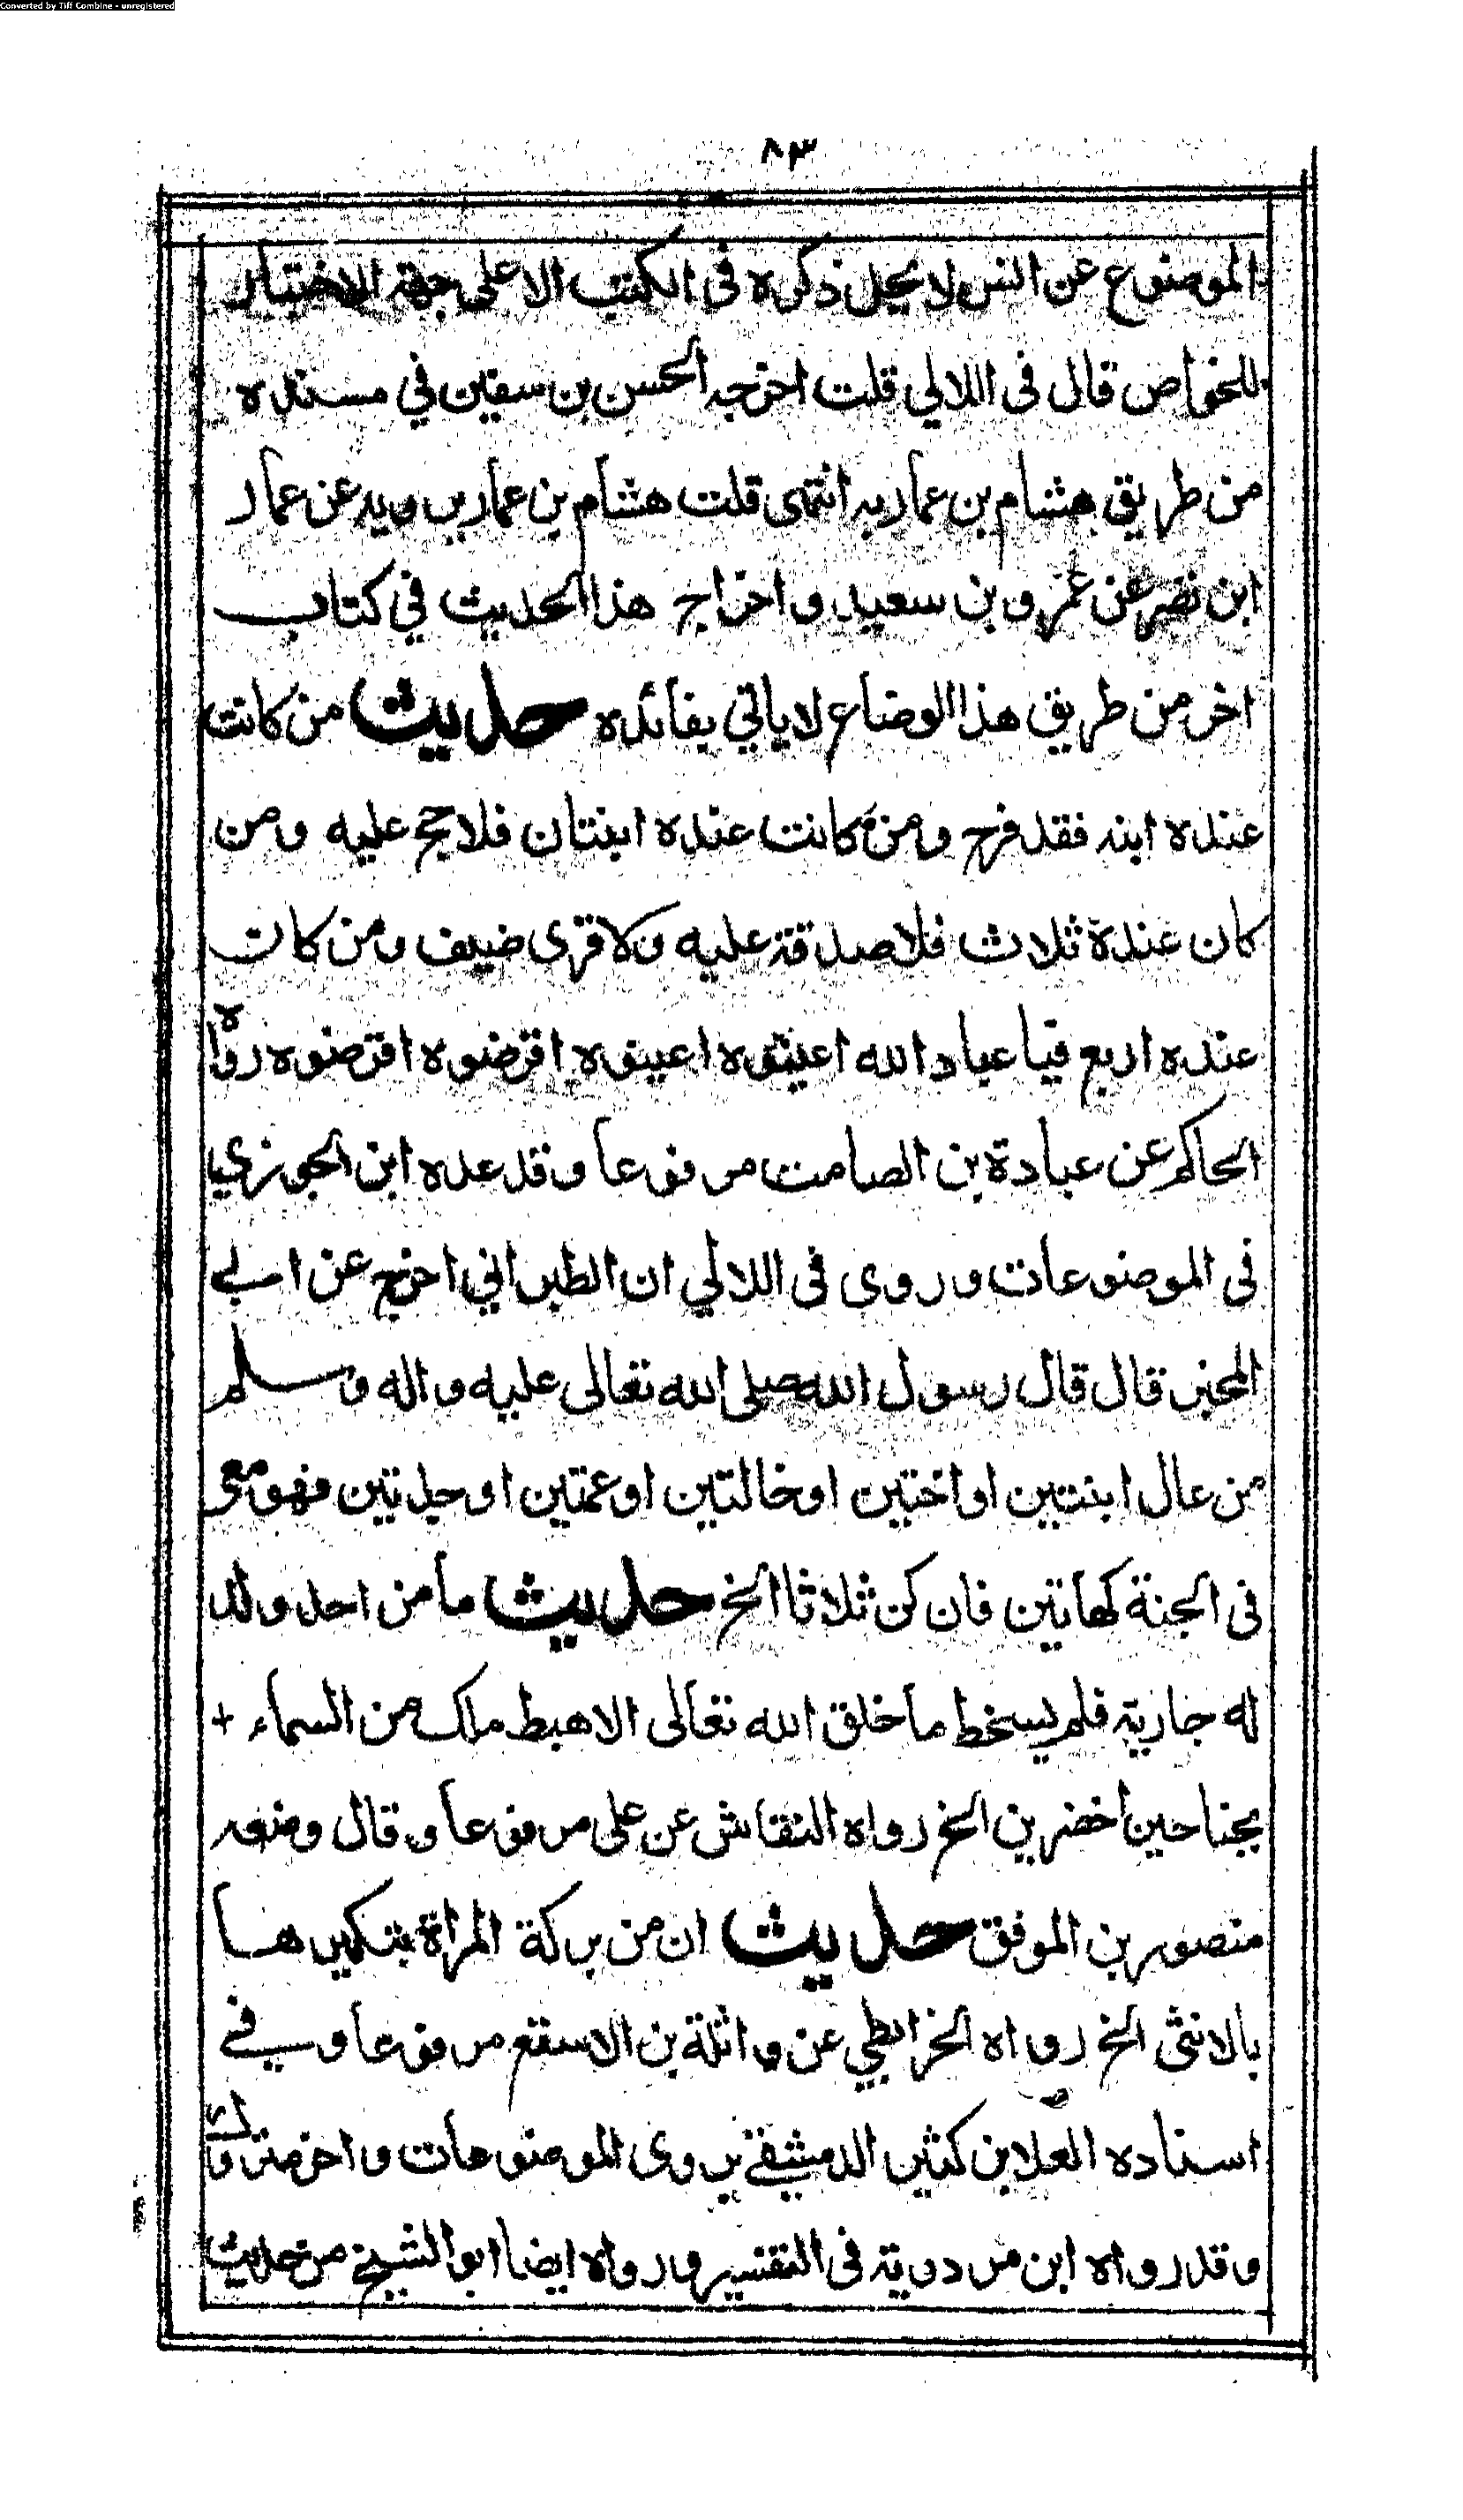 Converted by Tiff Combine - unregistered
٨٣
الموضوع عن انس لا يحل ذكره فى الكتب الا على جهة الاختبار
للخواص قال فى اللالي قلت اخرجه الحسن بن سفين في مسنده
من طريق هشام بن عمار به انتهى قلت هشام بن عمار يرويه عن عمار
ابن نصر عن عمرو بن سعيد و اخراج هذا الحديث في كتاب
اخر من طريق هذا الوضاع لا ياتي بفائده حديث من كانت
عنده ابنه فقد فرح ومن كانت عنده ابنتان فلا حج عليه ومن
كان عنده ثلاث فلا صدقة عليه ولا قرى ضيف ومن كان
عنده اربع فيا عباد الله اعينوه اعينوه اقرضوه اقرضوه رواه
الحاكم عن عبادة بن الصامت مرفوعا وقد عده ابن الجوزي
فى الموضوعات وروى فى اللالي ان الطبراني اخرج عن ابي
المجبر قال قال رسول الله صلى الله تعالى عليه واله وسلم
من عال ابنتين او اختين او خالتين او عمتين او جدتين فهو معي
فى الجنة كهاتين فان كن ثلاثا الخ حديث ما من احد ولد
له جارية فلم يسخط ما خلق الله تعالى الا هبط ملك من السماء +
بجناحين اخضرين الخ رواه النقاش عن على مرفوعا وقال وضعه
منصور بن الموفق حديث ان من بركة المراة بتكبيرها
بالانثى الخ رواه الخرائطي عن واثلة بن الاسقع مرفوعا وفي
اسناده العلا بن كثير الدمشقي يروى الموضوعات و
وقد رواه ابن مردوية فى التفسير ورواه ايضا ابو الشيخ من حديث